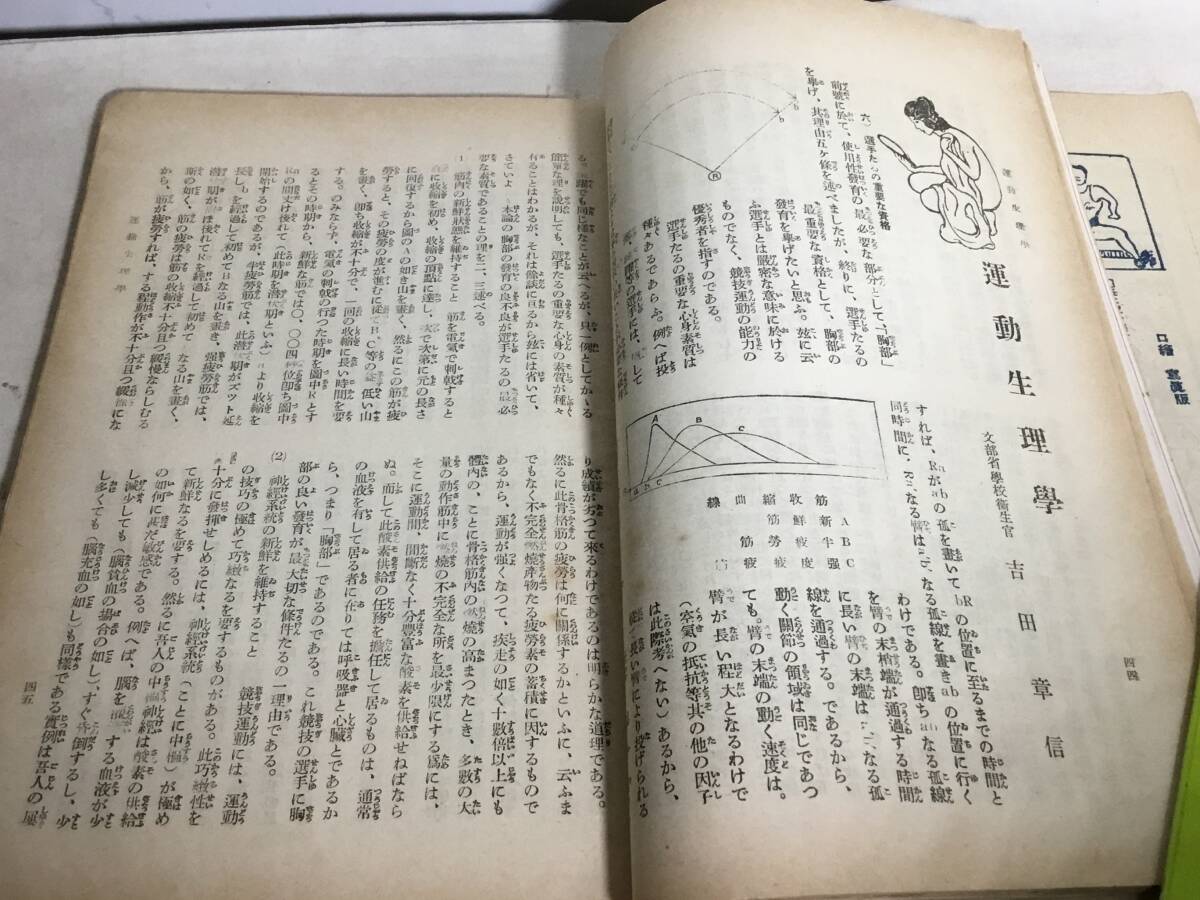 運動生理學
運動生理學
文部省學校衞生官 吉田章信
四四
六) 選手たるの重要な資格
前號に於て、使用性發育の最必要な部分として「胸部」
を擧げ、其理由五ケ條を述べましたが、終りに、選手たるの
最重要な資格として、胸部の
發育を擧げたいと思ふ。玆に云
ふ選手とは嚴密な意味に於ける
ものでなく、競技運動の能力の
優秀者を指すのである。
選手たるの重要な心身素質は
種々あるであらふ。例へば投
b
b
R
すれば、Raがabの孤を畫いてbRの位置に至るまでの時間と
同時間に、
の位置に行く
わけである。即ちabなる孤線
を臂の末梢端が通過する時間
に長い臂の末端は
なる孤
線を通過する。であるから、
動く關節の領域は同じであつ
ても、臂の末端の動く速度は、
臂が長い程大となるわけで
(空氣の抵抗等其の他の因子
は此際考へない)あるから、
長い臂により投げられる
A B C
a b c
A 新鮮筋
B 半疲勞筋
C 强度疲
筋收縮曲線
る。
でも同じ樣なことが云へるが、只一例としてかゝる
簡單な理を說明しても、選手たるの重要な心身の素質が種々
有ることはわかるが、それは餘談に亘るから玆には省いて、
さていよ
本論の胸部の發育の良不良が選手たるの最必
要な素質であることの理を二、三述べる。
1 筋肉の新鮮狀態を維持すること 筋を電氣で刺戟すると
に收縮を初め、收縮の頂點に達し、次で次第に元の長さ
に回復するから圖のAの如き山を畫く、然るにこの筋が疲
勞すると、その疲勞の度が進むに從てB、C等の
低い山
を畫く、即ち收縮が不十分で、一回の收縮に長い時間を要
する。のみならず、電氣の刺戟の行つた時期を圖中Rとす
るとその時期から、新鮮な筋では〇、〇〇四
位即ち圖中
の間丈け後れて
此時期を潛
期といふ)
より收縮を
開始するのであるが、半疲勞筋では、此潛
期がズット延
長し
を經過して初めてBなる山を畫き、强疲勞筋では、
潛
期が
後れてRを經過して初めて
なる山を畫く、
斯の如く、筋の疲勞は筋の收縮不十分且つ緩慢ならしむる
から、筋が疲勞すれば、する運動作が不十分且つ緩慢にな
運動生理學
り成績が劣つて來るわけであるのは明らかな道理である。
然るに此骨格筋の疲勞は何に關係するかといふに、云ふま
でもなく不完全燃燒產物たる疲勞素の蓄積に因するもので
あるから、運動が强くなつて、疾走の如く十數倍以上にも
體內の、ことに骨格筋內の燃燒の高まつたとき、多數の大
量の動作筋中に
燃燒の不完全な所を最少限にする爲には、
そこに運動間、間斷なく十分豐富な酸素を供給せねばなら
ぬ。而して此酸素供給の任務を擔任して居るものは、通常
の血液を有して居る者に在りては呼吸器と心臟とであるか
ら、つまり「胸部」であるのである。これ競技の選手に胸
部の良い發育が最大切な條件たるの一理由である。
(2) 神經系統の新鮮を維持すること 競技運動には、運動
の技巧の極めて巧緻なるを要するものがある。此巧緻性を
十分に發揮せしめるには、神經系統(ことに中樞)が極め
て新鮮なるを要する。然るに吾人の中樞神經は酸素の供給
の如何に甚だ敏感である。例へば、腦を
する血液が少
し減少しても(腦貧血の場合の如し)、すぐ昏倒するし、少
し多くても(腦充血の如し)も同樣である實例は吾人の屢
四五
口繪 寫眞版